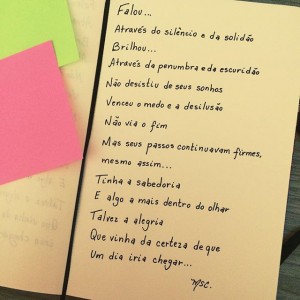 Falou...
Através do silêncio e da solidão
Brilhou...
Através da penumbra e da escuridão
Não desistiu de seus sonhos
Venceu o medo e a desilusão
Não via o fim
Mas seus passos continuavam firmes,
mesmo assim...
Tinha a sabedoria
E algo a mais dentro do olhar
Talvez a alegria
Que vinha da certeza de que
Um dia iria chegar...
MSC.